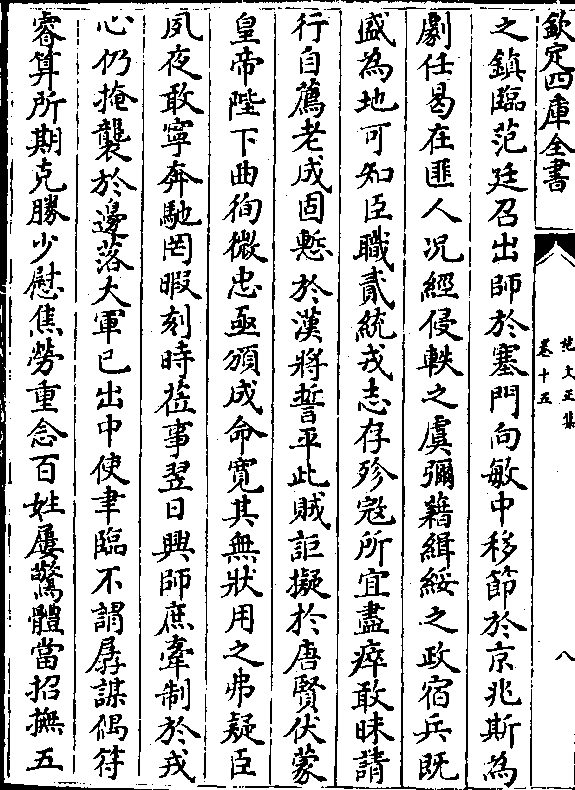 欽定四庫全書
范文正集
卷十五
八
之鎮臨范廷召出師於塞門向敏中移節於京兆斯為
劇任曷在匪人况經侵軼之虞彌藉緝綏之政宿兵既
盛為地可知臣職貳統戎志存殄寇所宜盡瘁敢昧請
行自薦老成固慙於漢將誓平此賊詎擬於唐賢伏蒙
皇帝陛下曲徇微忠亟頒成命寛其無狀用之弗疑臣
夙夜敢寧奔馳罔暇刻時莅事翌日興師庶牽制於戎
心仍掩襲於邊落大軍已出中使聿臨不謂孱謀偶符
睿算所期克勝少慰焦勞重念百姓屢驚體當招撫五